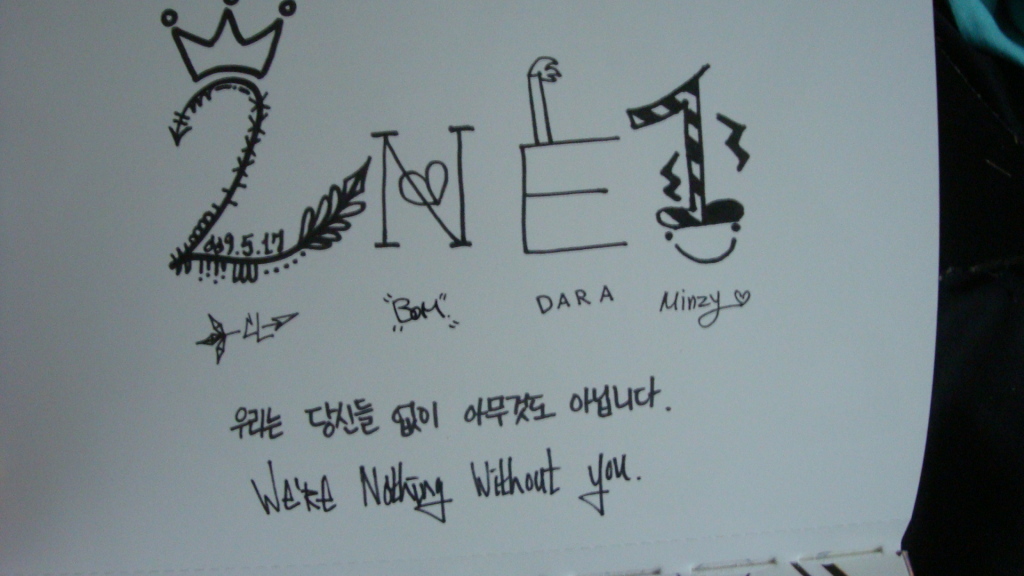 2NE1
09.5.17
CL "BOM" DARA Minzy
우리는 당신들 없이 아무것도 아닙니다.
We're Nothing Without you.